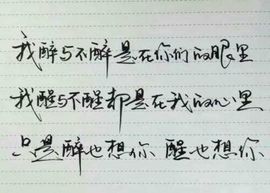 我醉与不醉是在你们的眼里
我醒与不醒都是在我的心里
只是醉也想你 醒也想你